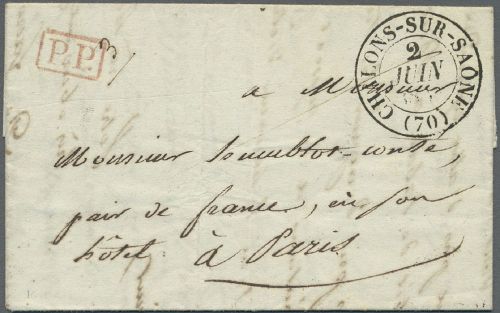 P.P.
CHALONS-SUR-SAÔNE (70)
2
JUIN
a Monsieur
Monsieur
pair de france, en son
hôtel à Paris